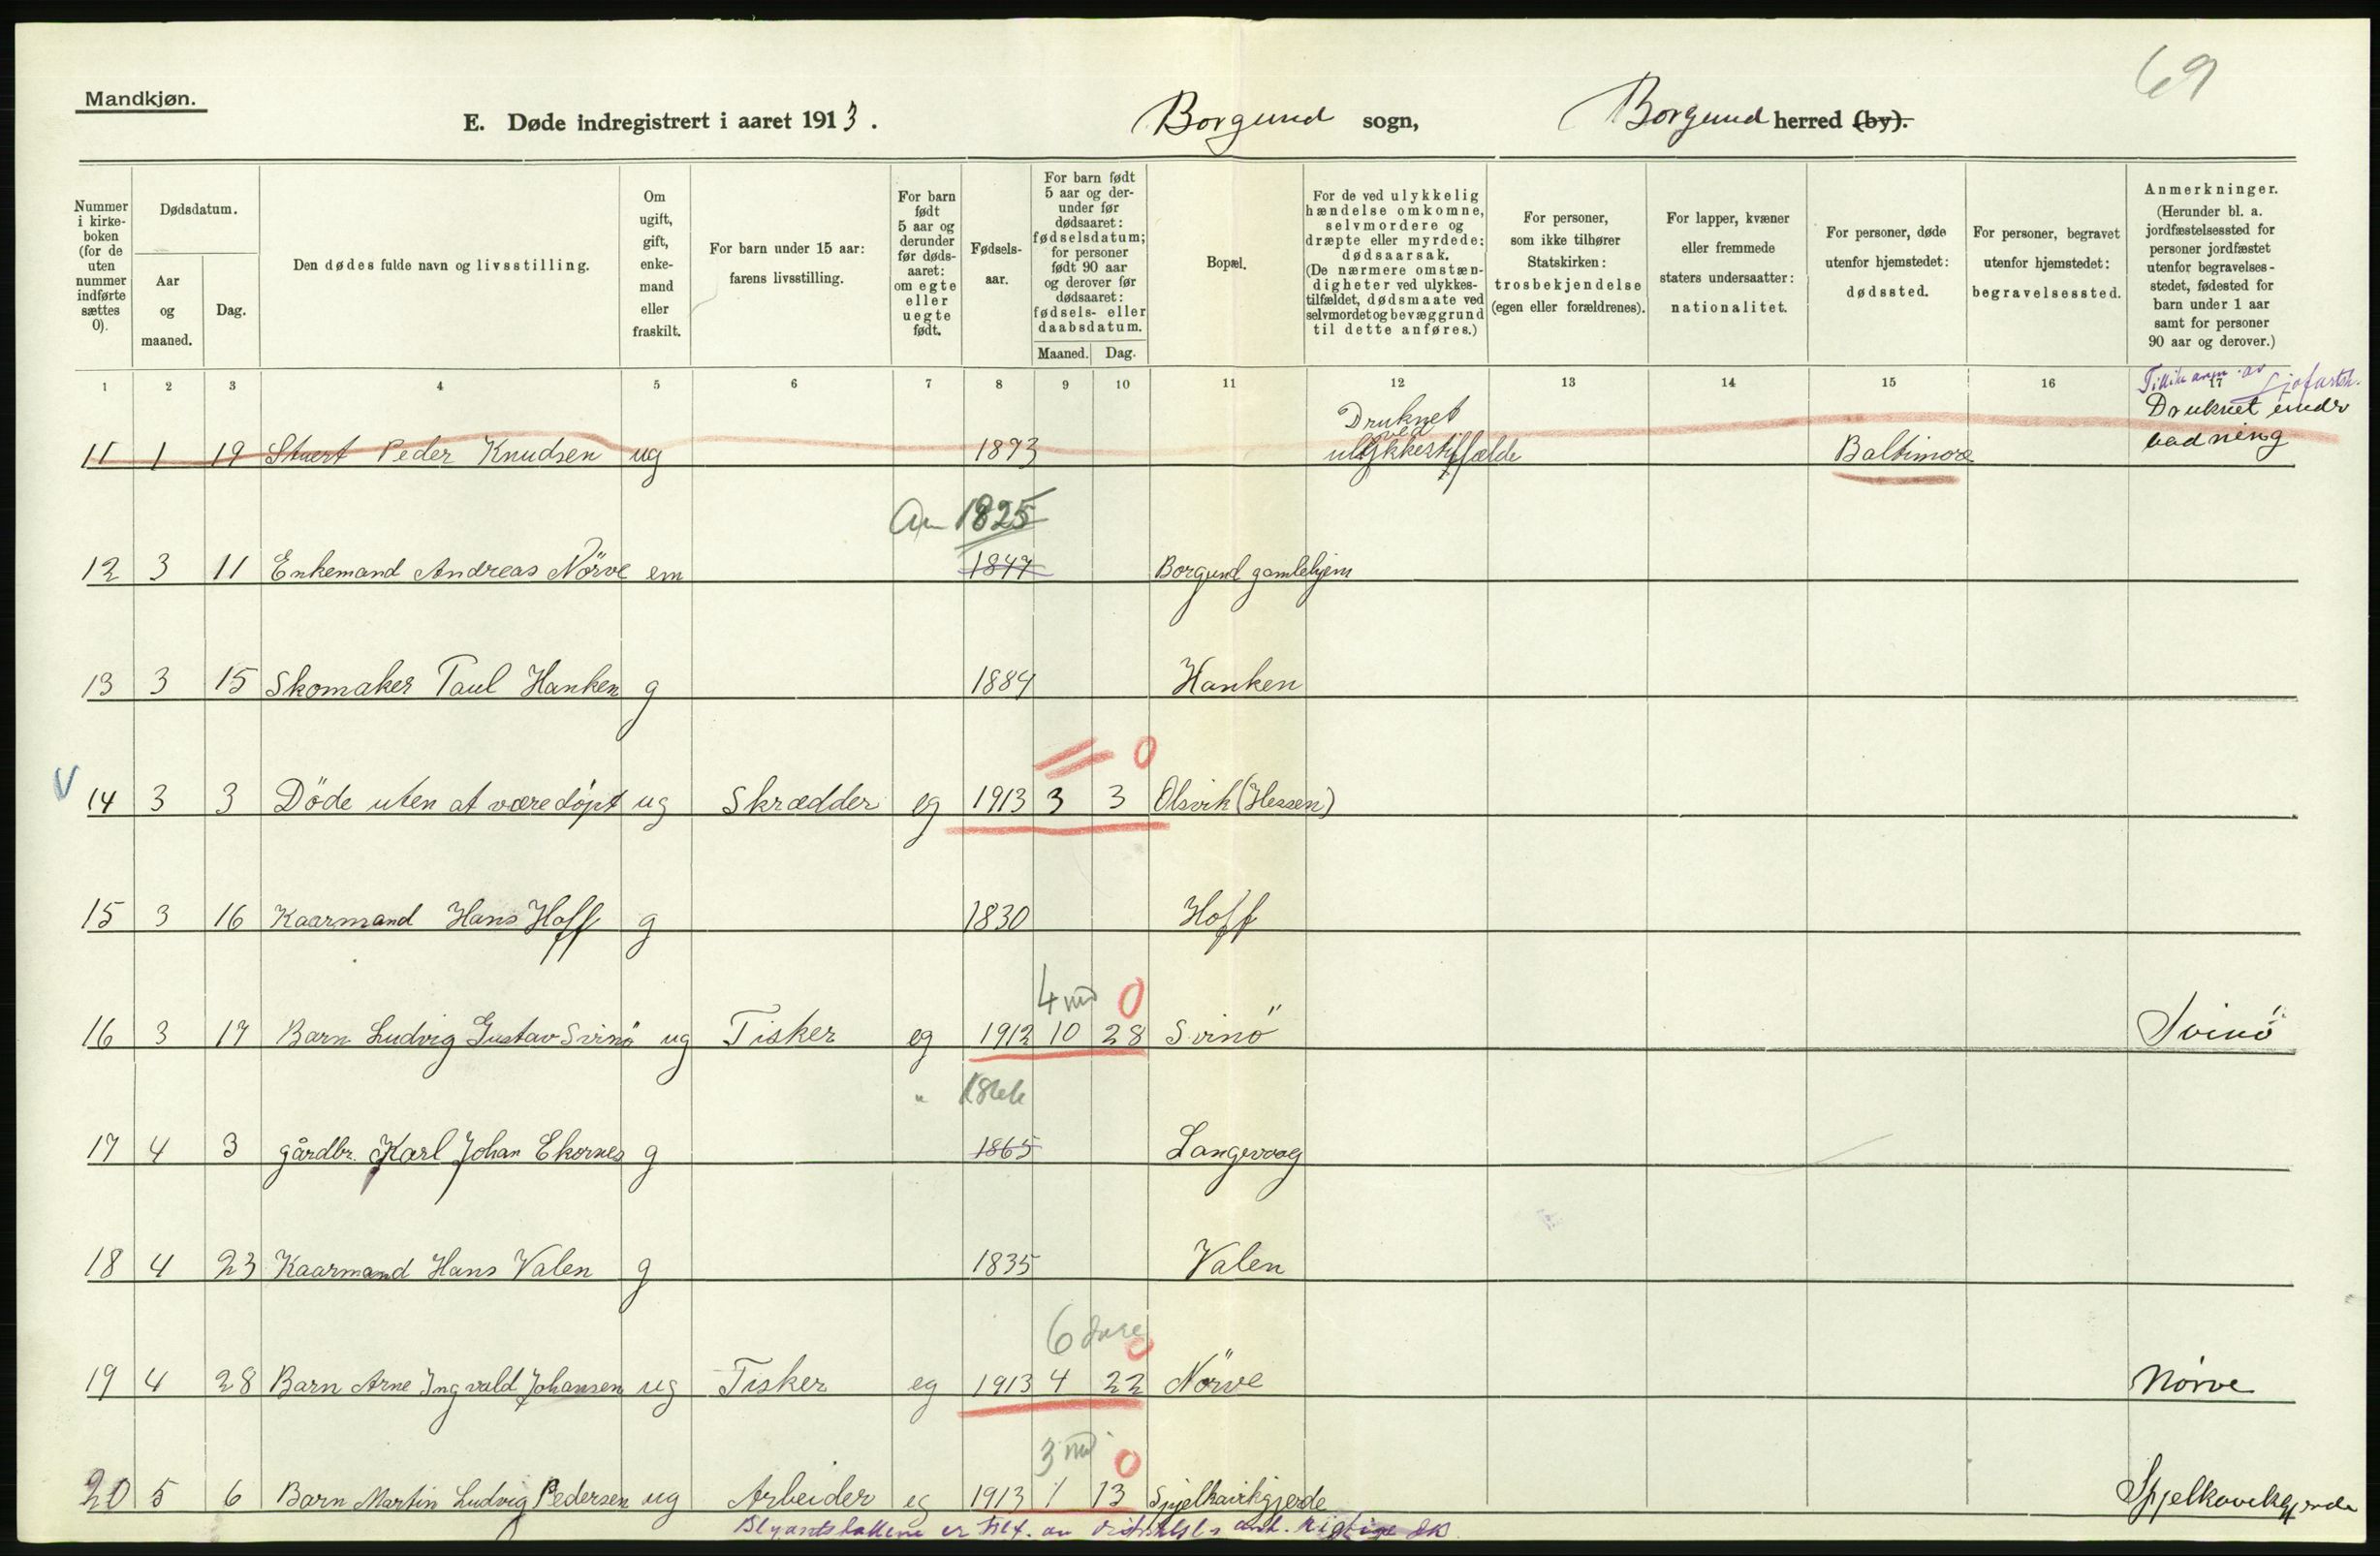 69
Mandkjøn.
E. Døde indregistrert i aaret 1913. Borgund sogn, Borgund herred (by).
Nummer i kirke-boken (for de uten nummer indførte sættes 0).
Dødsdatum.
Aar og maaned.
Dag.
Den dødes fulde navn og livsstilling.
Om ugift, gift, enke-mand eller fraskilt.
For barn under 15 aar: farens livsstilling.
For barn født 5 aar og derunder før døds-aaret: om egte eller uegte født.
Fødsels-aar.
For barn født 5 aar og der-under før dødsaaret: fødselsdatum; for personer født 90 aar og derover før dødsaaret: fødsels- eller daabsdatum.
Maaned. Dag.
Bopæl.
For de ved ulykkelig hændelse omkomne, selvmordere og dræpte eller myrdede: dødsaarsak. (De nærmere omstæn-digheter ved ulykkes-tilfældet, dødsmaate ved selvmordet og bevæggrund til dette anføres.)
For personer, som ikke tilhører Statskirken: trosbekjendelse (egen eller forældrenes).
For lapper, kvæner eller fremmede staters undersaatter: nationalitet.
For personer, døde utenfor hjemstedet: dødssted.
For personer, begravet utenfor hjemstedet: begravelsessted.
Anmerkninger. (Herunder bl. a. jordfæstelsessted for personer jordfæstet utenfor begravelses-stedet, fødested for barn under 1 aar samt for personer 90 aar og derover.)
1 2 3 4 5 6 7 8 9 10 11 12 13 14 15 16 17
Druknet Druknet under
ved badning
11 1 19 Peder Knudsen ug 1893 ulykkestilfælde Baltimore
1825
12 3 11 Enkemand Andreas Nörve em 1847 Borgund gamlehjem
13 3 15 Skomaker Paul Hanken g 1884 Hanken
0
V 14 3 3 Döde uten at være döpt ug Skrædder eg 1913 3 3 Olsvik (Hessen)
15 3 16 Kaarmand Hans Hoff g 1830 Hoff
4 md 0
16 3 17 Barn Ludvig Gustav Svinö ug Fisker eg 1912 10 28 Svinö Svinö
" 1866
17 4 3 gårdbr. Karl Johan Ekornes g 1865 Langevaag
18 4 23 Kaarmand Hans Valen g 1835 Valen
6 dage 0
19 4 28 Barn Arne Ingvald Johansen ug Fisker eg 1913 4 22 Nörve Nörve
3 md 0
20 5 6 Barn Martin Ludvig Pedersen ug Arbeider eg 1913 1 13 Spjelkavikgjerde Spjelkavikgjerde
er